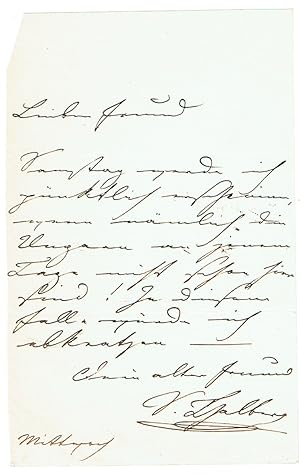 Lieber Freund
Samstag werde ich
pünktlich erscheinen,
wenn nämlich die
Ungarn an jenem
Tage nicht schon hier
sind! In diesem
Falle würde ich
abkratzen —
Dein alter Freund
S. Thalberg
Mittwoch